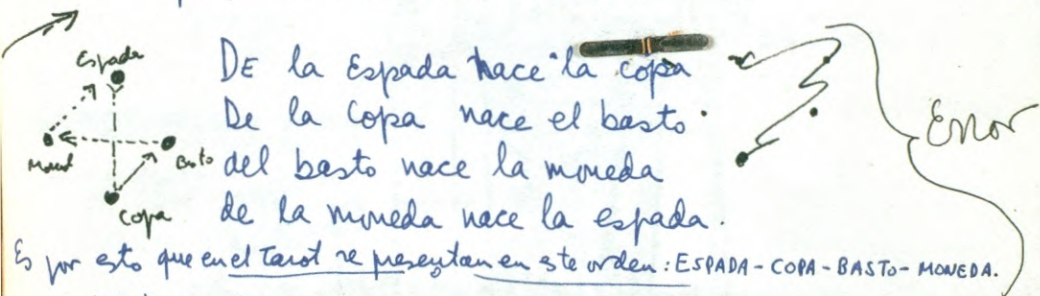 Espada
DE la Espada nace la copa
De la Copa nace el basto
Basto
del basto nace la moneda
Copa
de la moneda nace la espada.
Error
Es por esto que en el Tarot se presentan en este orden: ESPADA - COPA - BASTO - MONEDA.